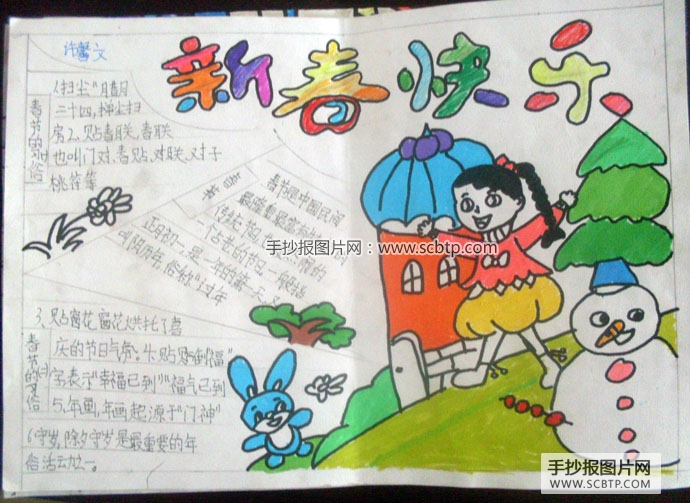 新春快乐
许馨文
春节的习俗
1扫尘"腊月
二十四,掸尘扫
房2、贴春联,春联
也叫门对、春贴、对联、对子
桃符等
春节
春节是中国民间
最隆重最富有
传统节日
一个古老的节日一般指
正月初一,是一年的第一天,又
叫阴历年,俗称"过年
手抄报图片网:www.scbtp.com
春节的习俗
3、贴窗花,窗花烘托了喜
庆的节日气氛;4、贴"倒福"
字表示"幸福已到""福气已到
5、年画,年画起源于"门神"
6守岁,除夕守岁是最重要的年
俗活动之一。
手抄报图片网
SCBTP.COM